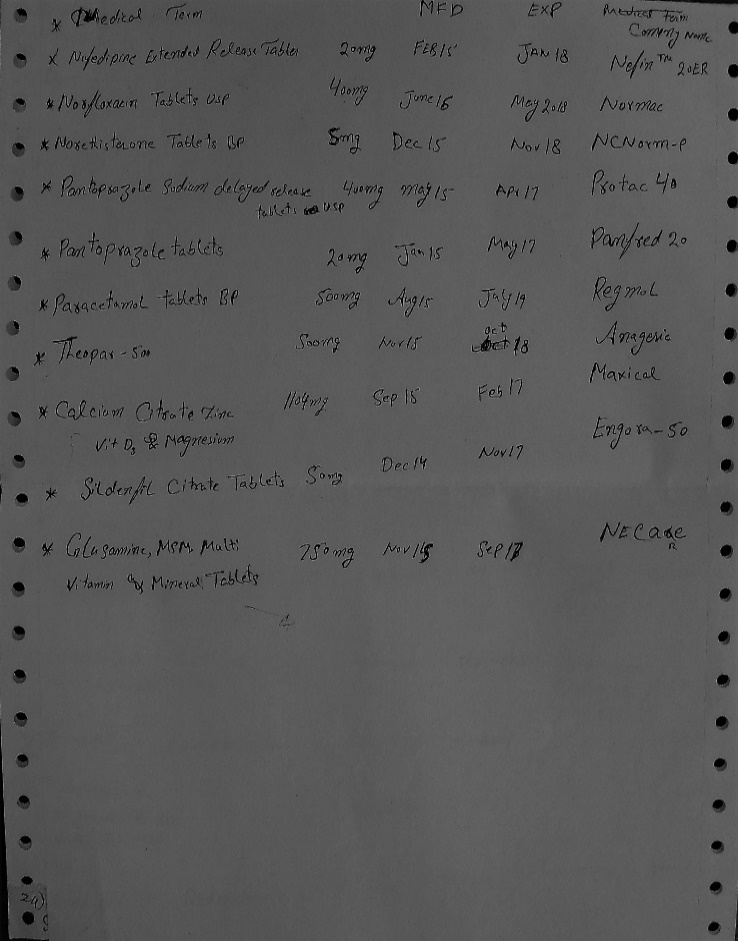 * Medical Term MFD EXP Medical Term
Coming Name
* Nifedipine Extended Release Tablet 20mg FEB15 JAN 18 Nefin™ 20ER
* Norfloxacin Tablets USP 400mg June 16 May 2018 Normac
* Norethisterone Tablets BP 5mg Dec 15 Nov 18 NCNorm-P
* Pantoprazole Sodium delayed release 400mg May 15 Apr 17 Protac 40
tablets USP
* Pantoprazole tablets 20mg Jan 15 May 17 Panfred 20
* Paracetamol tablets BP 500mg Aug 15 July 19 Regmol
* Theopar-500 500mg Nov 15 oct 18 Anageric
* Calcium Citrate Zinc 1104mg Sep 15 Feb 17 Maxical
Vit D3 & Magnesium
* Sildenfil Citrate Tablets 50mg Dec 14 Nov 17 Engora-50
* Glusamine, MSM, Multi 750mg Nov 15 Sep 17 NECare
Vitamin & Mineral, Tablets